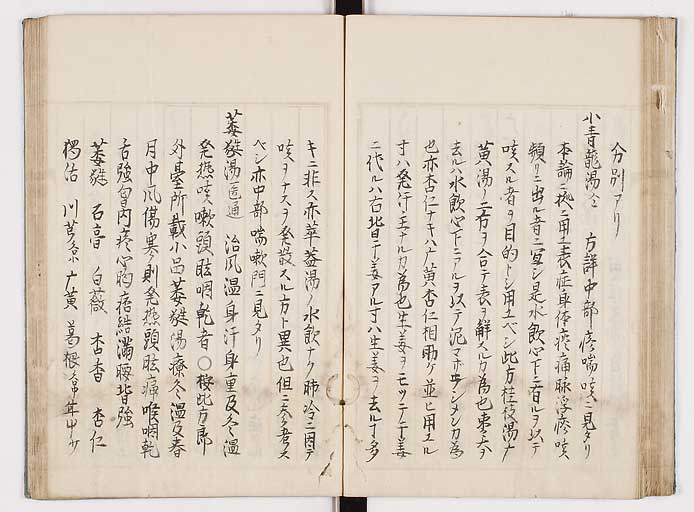 分別アリ
小青龍湯 方詳中部 喘咳ニ見タリ
本論ニ拠ニ用ユ表症身体疼痛脉浮 咳
頻リニ出ル者ニ宜シ是水飲心下ニ畜ルヲ以テ
咳スル者ヲ目的トシ用ユベシ此方桂枝湯
黄湯ノ二方ヲ合テ表ヲ解スルカ為也
去ルハ水飲心下ニアルヲ以テ泥マ シメンカ為
也亦杏仁ナキハ广黄杏仁相助ケ並ヒ用ユル
寸ハ発汗ニ カ為也生姜ヲモツテ干姜
ニ代ルハ古昔ニ干姜アル寸ハ生姜ヲ去ル 多
キニ非ス亦苹 湯ノ水飲ナク肺冷ニ因テ
咳ヲナスヲ発散スル方ト異也但ニ参考ス
ベシ亦中部 喘嗽門ニ見タリ
葳蕤湯 医通 治風温身汗身重及冬温
発熱咳嗽頭眩咽乾者 ○按此方郎
外臺所載小品葳蕤湯療冬温及春
月中風傷寒則発熱頭眩痛喉咽乾
舌強 内疼心胸痞結満腰背強
葳蕤 石膏 白薇 木香 杏仁
獨活 川芎 广黄 葛根